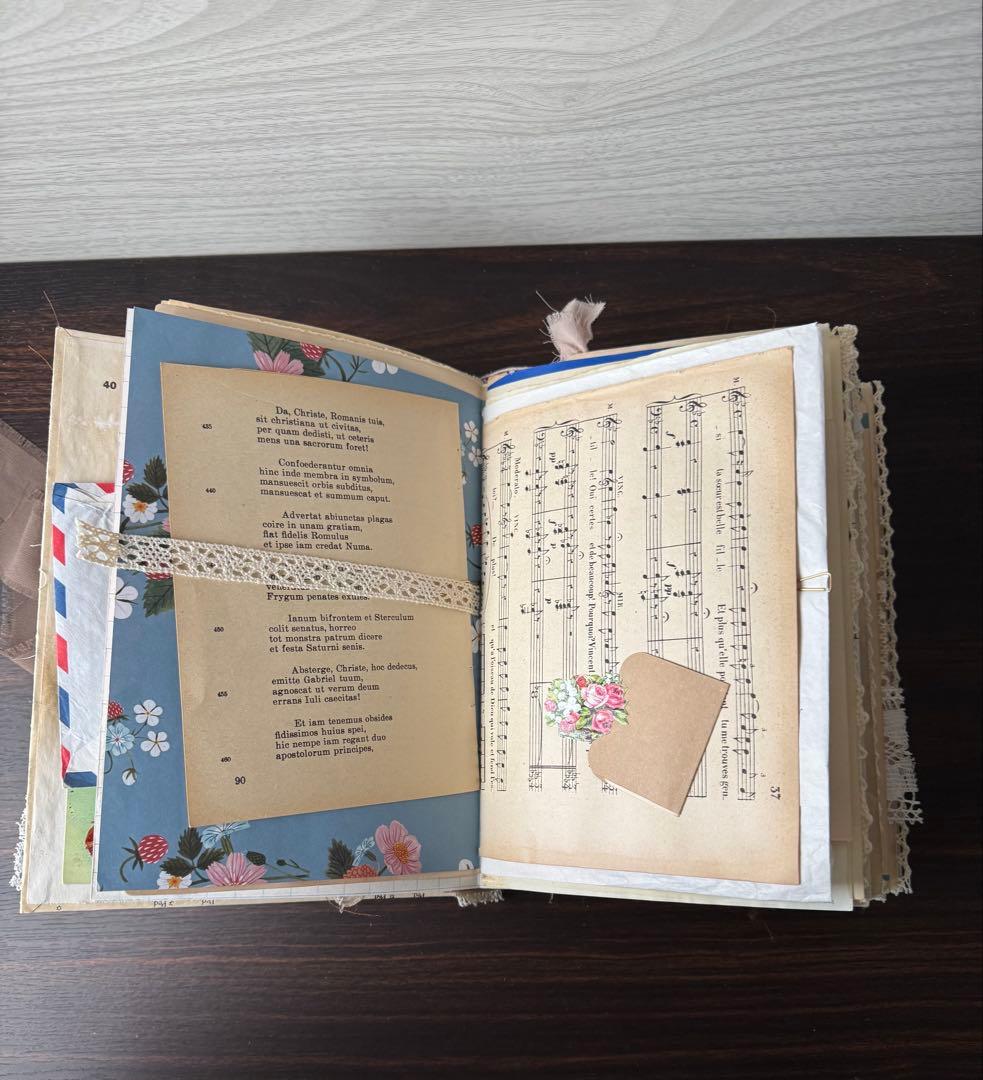 40
Da, Christe, Romanis tuis,
435 sit christiana ut civitas,
per quam dedisti, ut ceteris
mens una sacrorum foret!
Confoederantur omnia
hinc inde membra in symbolum,
440 mansuescit orbis subditus,
mansuescat et summum caput.
Advertat abiunctas plagas
coire in unam gratiam,
fiat fidelis Romulus
et ipse iam credat Numa.
Frygum penates exules.
Ianum bifrontem et Sterculum
450 colit senatus, horreo
tot monstra patrum dicere
et festa Saturni senis.
Absterge, Christe, hoc dedecus,
emitte Gabriel tuum,
455 agnoscat ut verum deum
errans Iuli caecitas!
Et iam tenemus obsides
fidissimos huius spei,
hic nempe iam regant duo
460 apostolorum principes,
90
37
M.
- si la sœur est belle fil - le Et plus qu'elle tu me trouves gen.
3
3
f
pp
M. VINC. MIR.
- til - le! Oui certes et de beaucoup! Pourquoi? Vincent
pp
f
p
p
M. Moderato. VINC.
plus!
et qu'a l'oiseau de Dieu qui vole et fend